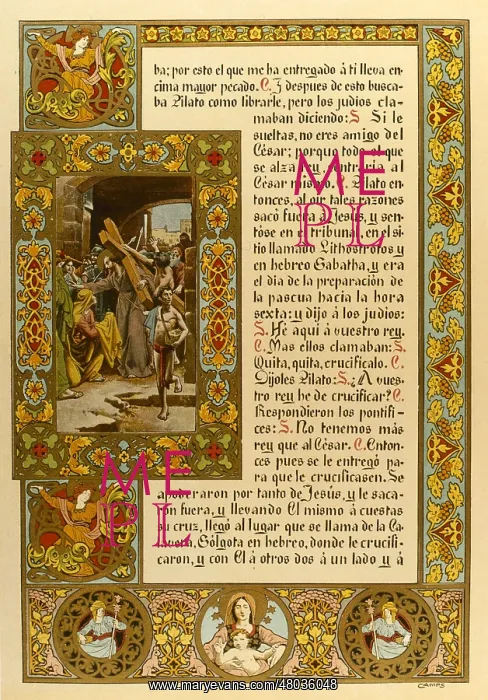 ba; por esto el que me ha entregado á ti lleva en-
cima mayor pecado. C. Y despues de esto busca-
ba Pilato como librarle, pero los judios cla-
maban diciendo: S Si le
sueltas, no eres amigo del
César; porque que
se alza al
César Pilato en-
tonces, al oir tales razones
sacó fuera á Jesús, y sen-
tóse en el tribunal, en el si-
tio llamado Lithostrotos y
en hebreo Gabatha, y era
el dia de la preparación de
la pascua hacia la hora
sexta: y dijo á los judios:
S. Hé aquí á vuestro rey.
C. Mas ellos clamaban: S.
Quita, quita, crucificalo. C.
Dijoles Pilato: S. ¿A vues-
tro rey he de crucificar? C.
Respondieron los pontifi-
ces: S. No tenemos más
rey que al César. C. Enton-
ces pues se le entregó pa-
ra que le crucificasen. Se
apoderaron por tanto de Jesús, y le saca-
ron fuera, y llevando El mismo á cuestas
su cruz, llegó al lugar que se llama de la Ca-
lavera, Gólgota en hebreo, donde le crucifi-
caron, y con El á otros dos á un lado y á
CAMPS
ME
PL
ME
PL
www.maryevans.com/48036048